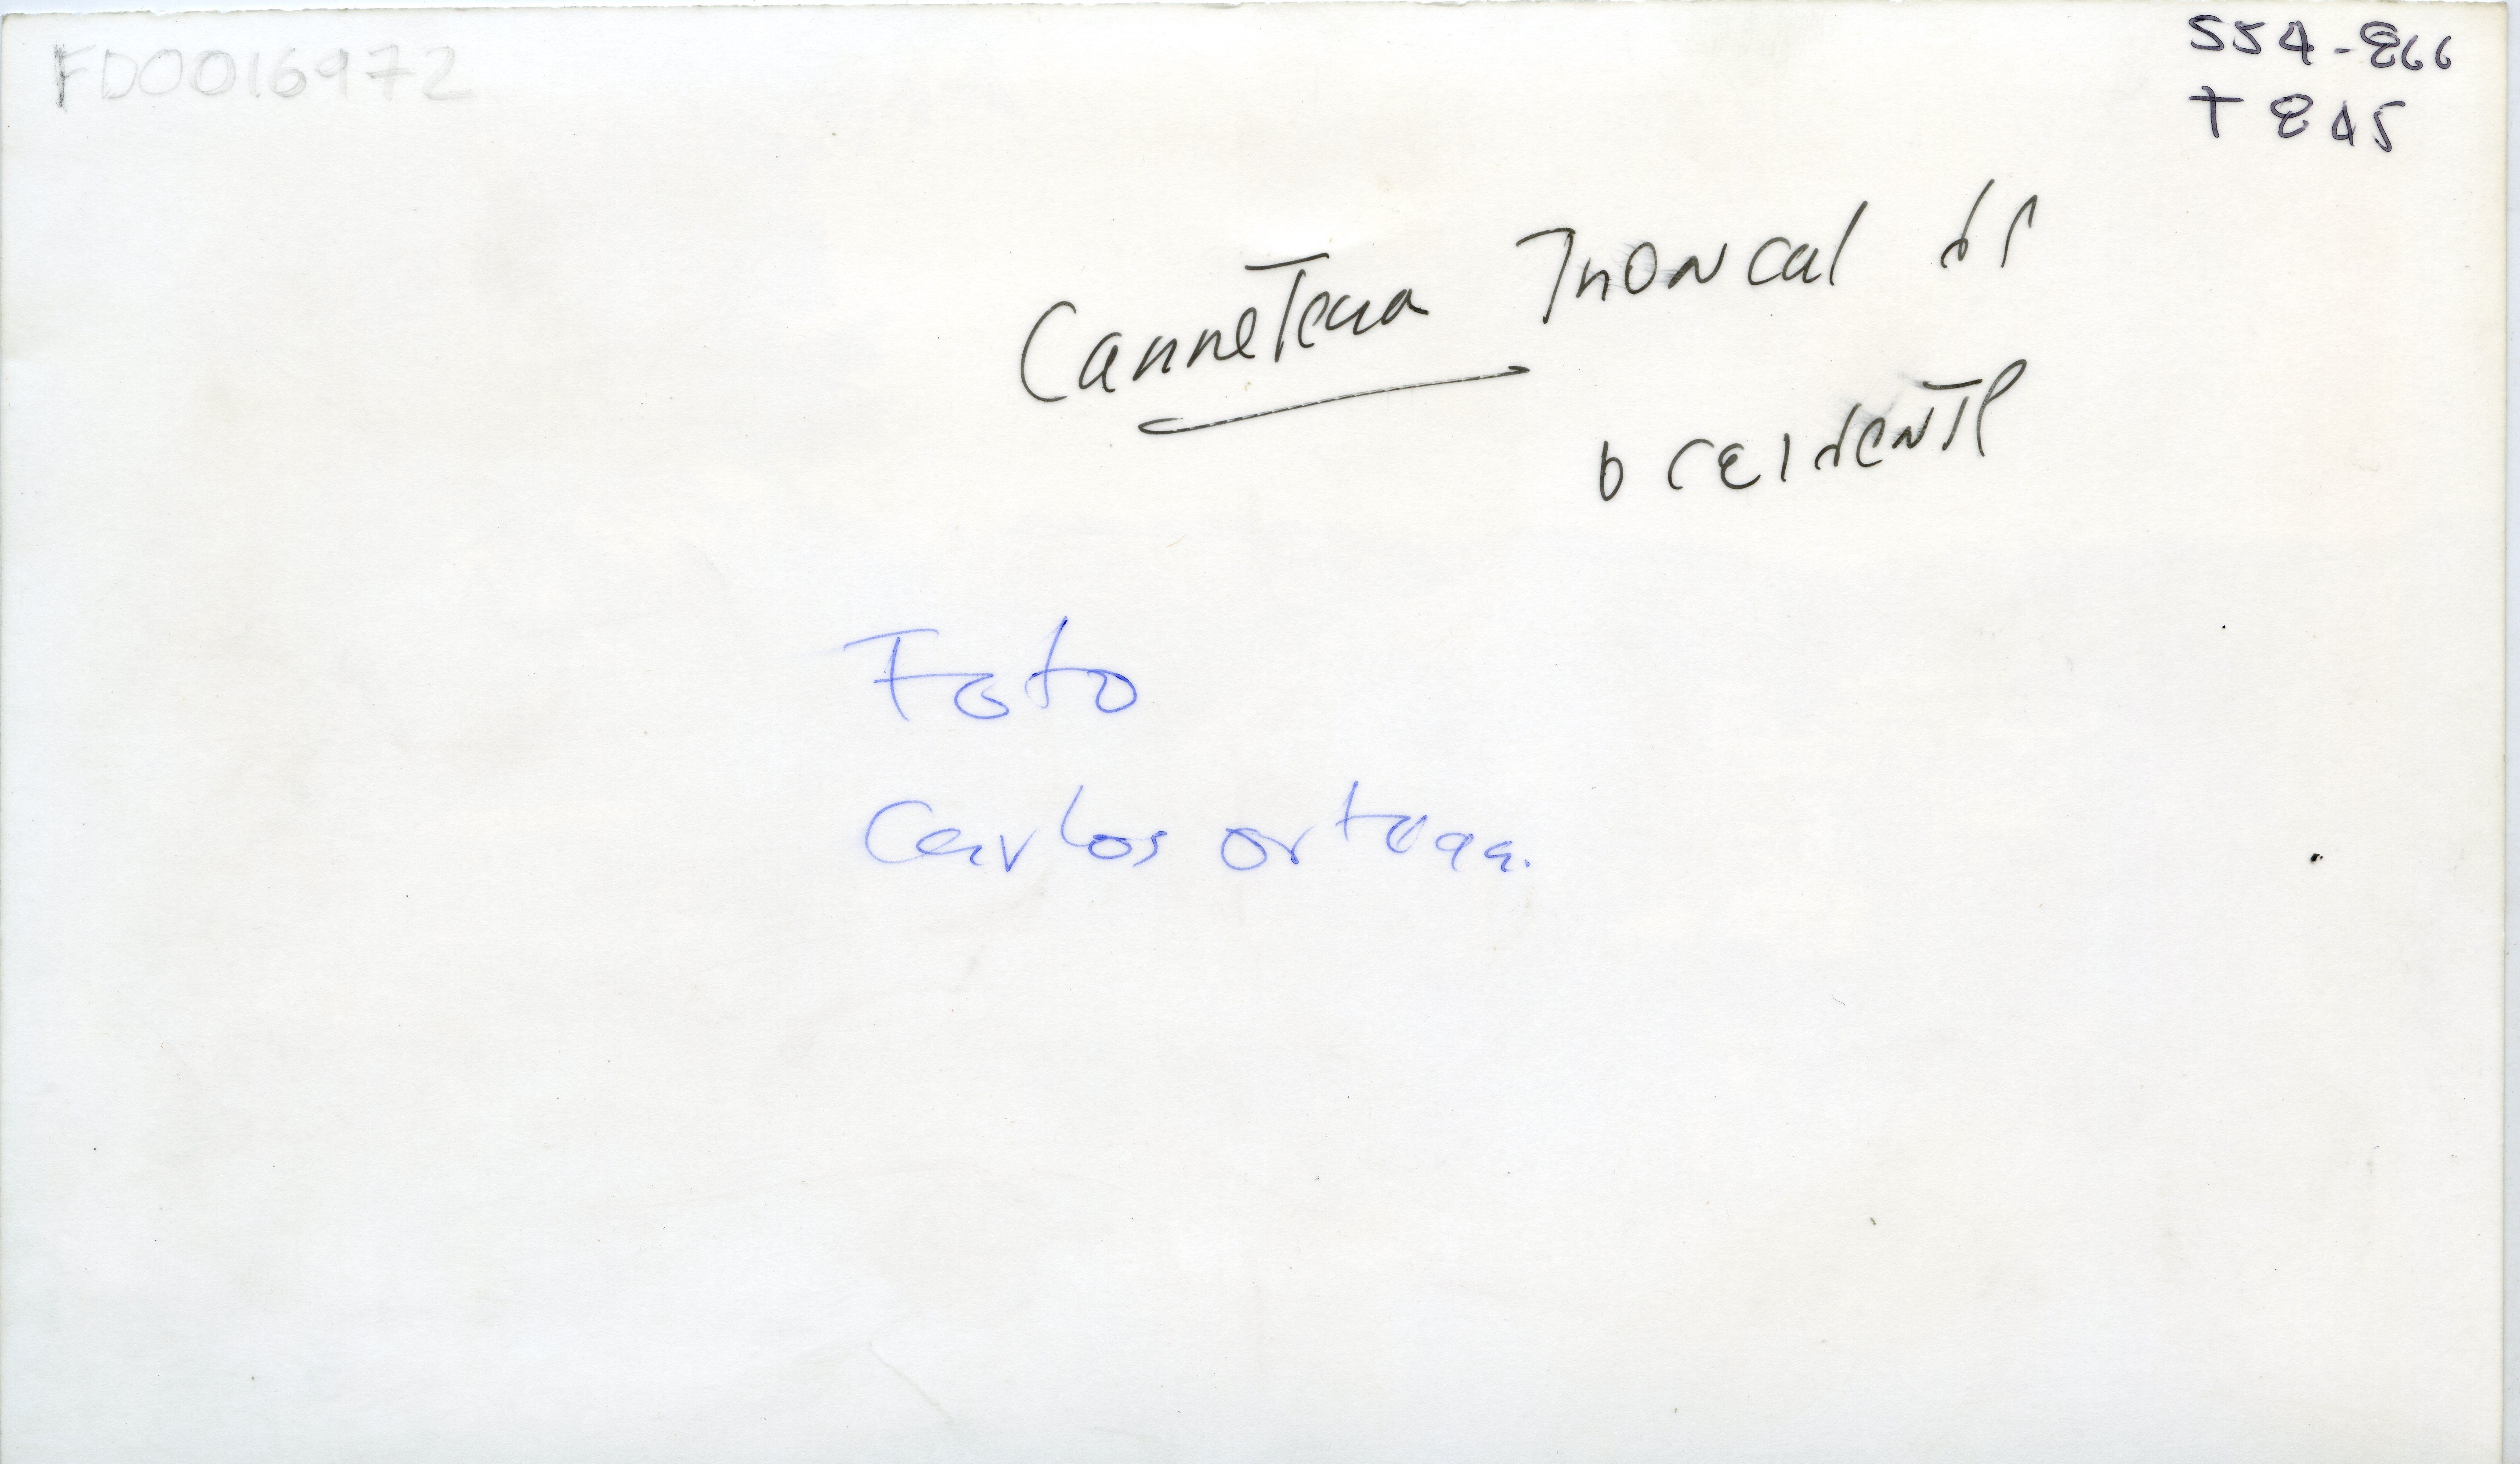 FD0016972
554-866
T 845
Carretera Troncal de
occidente
Foto
Carlos ortega.